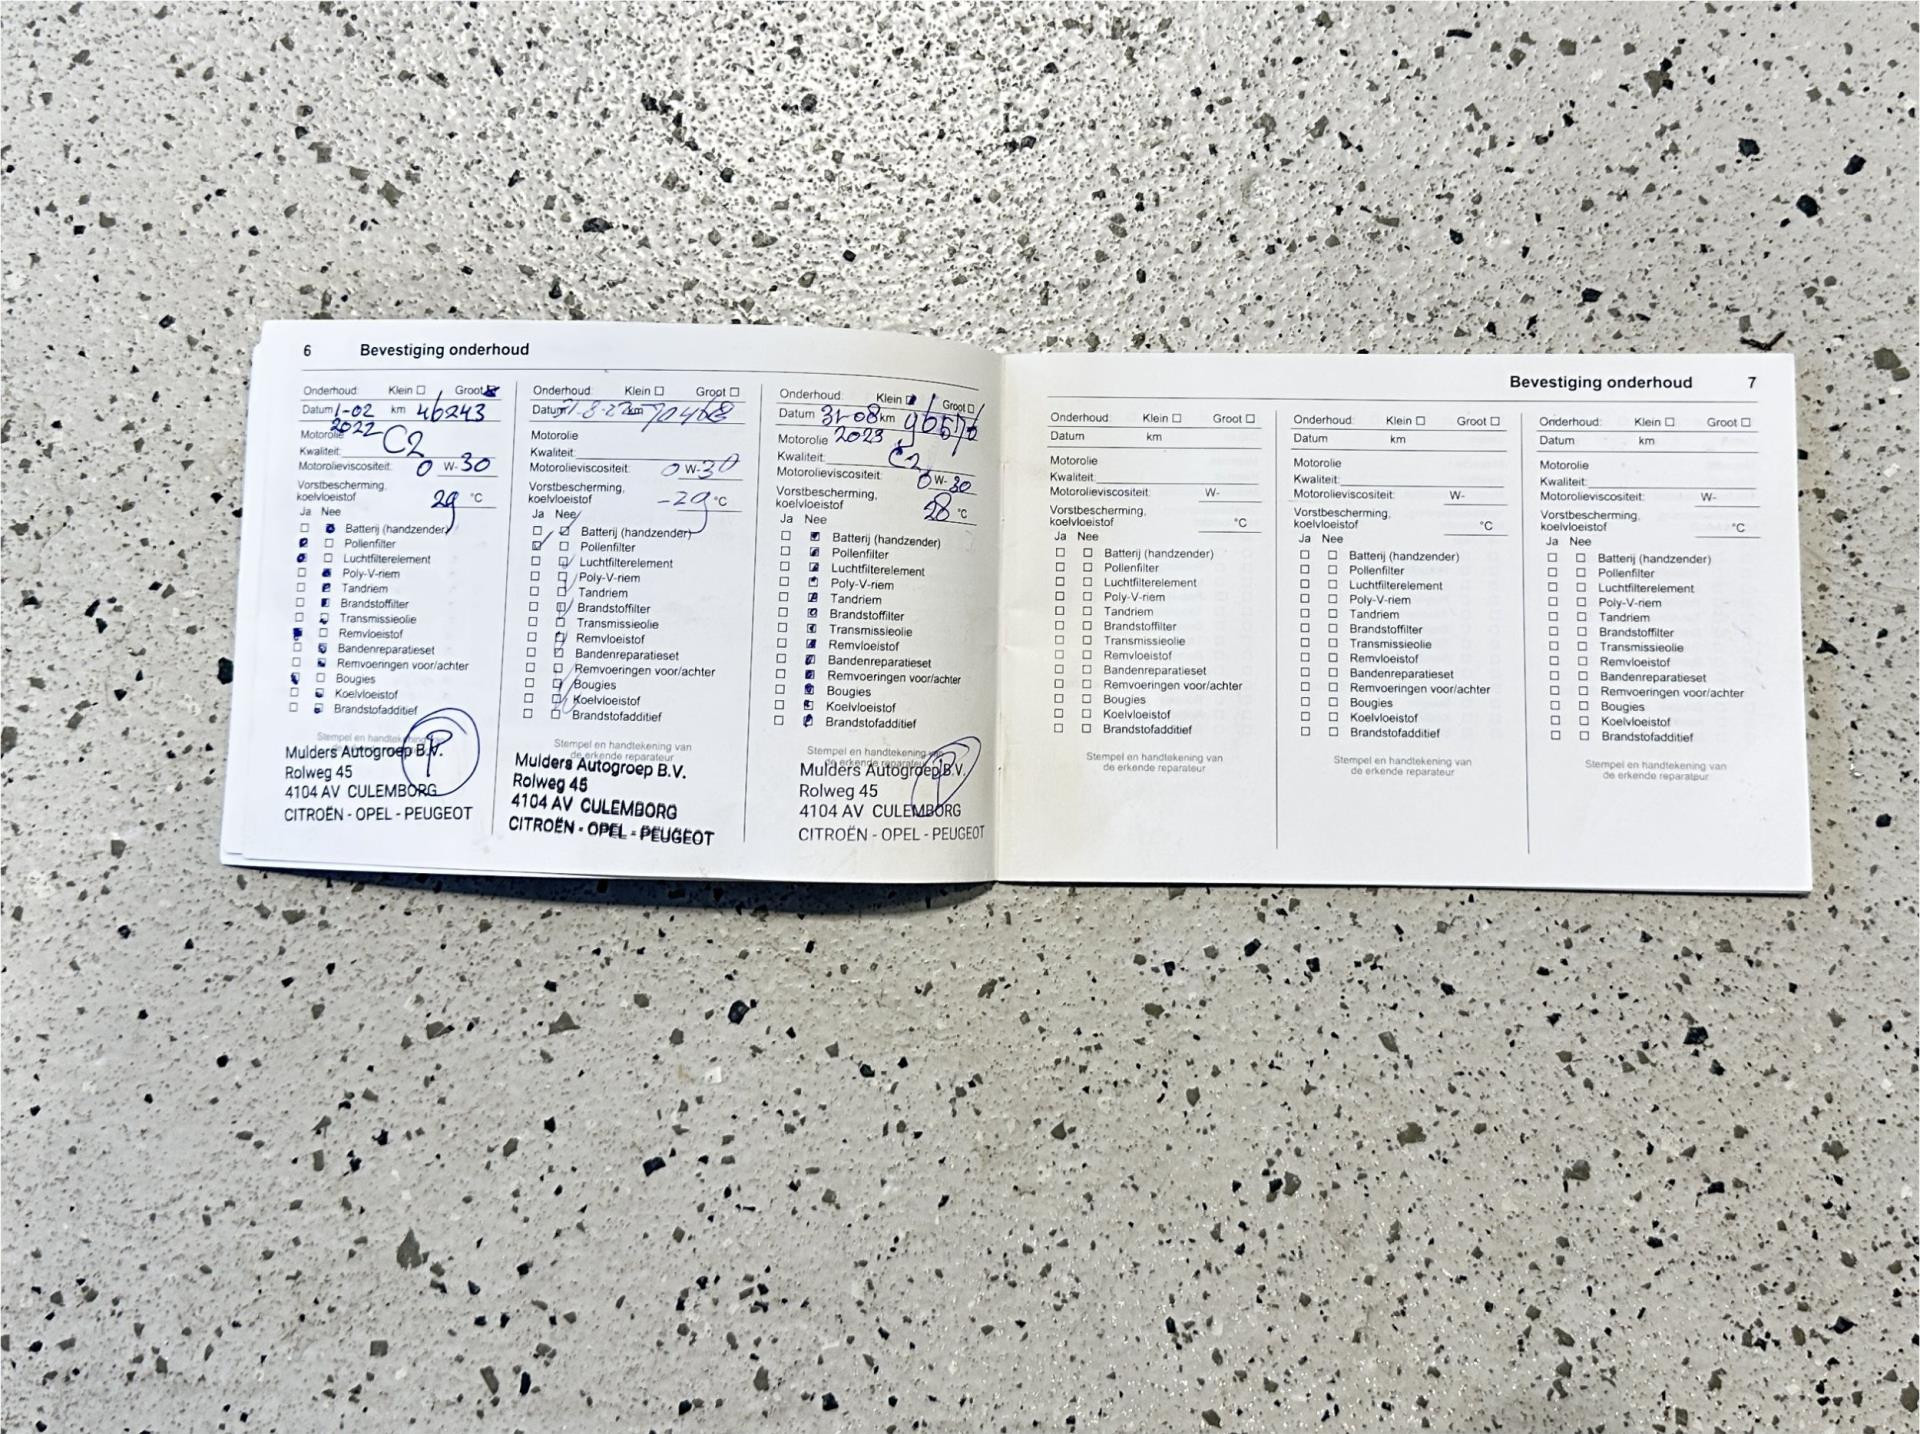 6 Bevestiging onderhoud
Onderhoud: Klein Groot
Datum 1-02 km 46243
2022
Motorolie C2
Kwaliteit:
Motorolieviscositeit: 0 W- 30
Vorstbescherming,
koelvloeistof 29 °C
Ja Nee
Batterij (handzender)
Pollenfilter
Luchtfilterelement
Poly-V-riem
Tandriem
Brandstoffilter
Transmissieolie
Remvloeistof
Bandenreparatieset
Remvoeringen voor/achter
Bougies
Koelvloeistof
Brandstofadditief
Stempel en handtekening
Mulders Autogroep B.V.
Rolweg 45
4104 AV CULEMBORG
CITROËN - OPEL - PEUGEOT
Onderhoud: Klein Groot
Datum km
Motorolie
Kwaliteit:
Motorolieviscositeit: 0 W- 30
Vorstbescherming,
koelvloeistof -29 °C
Ja Nee
Batterij (handzender)
Pollenfilter
Luchtfilterelement
Poly-V-riem
Tandriem
Brandstoffilter
Transmissieolie
Remvloeistof
Bandenreparatieset
Remvoeringen voor/achter
Bougies
Koelvloeistof
Brandstofadditief
Stempel en handtekening van
de erkende reparateur
Mulders Autogroep B.V.
Rolweg 45
4104 AV CULEMBORG
CITROËN - OPEL - PEUGEOT
Onderhoud: Klein Groot
Datum 31-08 km
Motorolie 2023
Kwaliteit: C2
Motorolieviscositeit: 0 W- 30
Vorstbescherming,
koelvloeistof 28 °C
Ja Nee
Batterij (handzender)
Pollenfilter
Luchtfilterelement
Poly-V-riem
Tandriem
Brandstoffilter
Transmissieolie
Remvloeistof
Bandenreparatieset
Remvoeringen voor/achter
Bougies
Koelvloeistof
Brandstofadditief
Stempel en handtekening van
de erkende reparateur
Mulders Autogroep B.V.
Rolweg 45
4104 AV CULEMBORG
CITROËN - OPEL - PEUGEOT
Bevestiging onderhoud 7
Onderhoud: Klein Groot
Datum km
Motorolie
Kwaliteit:
Motorolieviscositeit: W-
Vorstbescherming,
koelvloeistof °C
Ja Nee
Batterij (handzender)
Pollenfilter
Luchtfilterelement
Poly-V-riem
Tandriem
Brandstoffilter
Transmissieolie
Remvloeistof
Bandenreparatieset
Remvoeringen voor/achter
Bougies
Koelvloeistof
Brandstofadditief
Stempel en handtekening van
de erkende reparateur
Onderhoud: Klein Groot
Datum km
Motorolie
Kwaliteit:
Motorolieviscositeit: W-
Vorstbescherming,
koelvloeistof °C
Ja Nee
Batterij (handzender)
Pollenfilter
Luchtfilterelement
Poly-V-riem
Tandriem
Brandstoffilter
Transmissieolie
Remvloeistof
Bandenreparatieset
Remvoeringen voor/achter
Bougies
Koelvloeistof
Brandstofadditief
Stempel en handtekening van
de erkende reparateur
Onderhoud: Klein Groot
Datum km
Motorolie
Kwaliteit:
Motorolieviscositeit: W-
Vorstbescherming,
koelvloeistof °C
Ja Nee
Batterij (handzender)
Pollenfilter
Luchtfilterelement
Poly-V-riem
Tandriem
Brandstoffilter
Transmissieolie
Remvloeistof
Bandenreparatieset
Remvoeringen voor/achter
Bougies
Koelvloeistof
Brandstofadditief
Stempel en handtekening van
de erkende reparateur